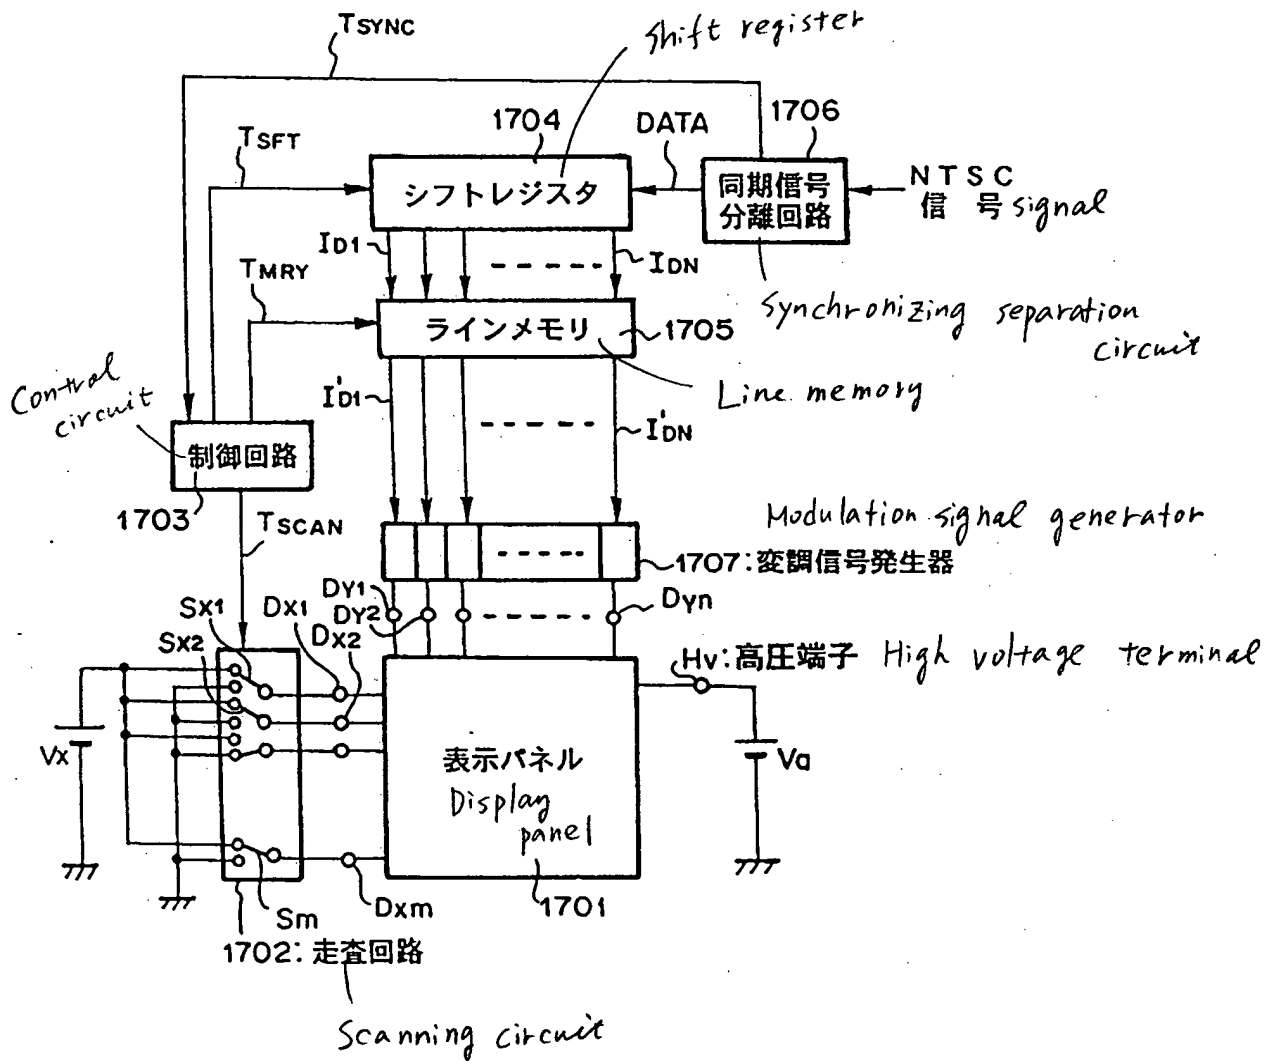 TSYNC
Shift register
1704
DATA
1706
TSFT
シフトレジスタ
同期信号
分離回路
NTSC
信号 signal
ID1
IDN
TMRY
ラインメモリ
1705
Synchronizing separation
circuit
Control
circuit
I'D1
Line memory
I'DN
制御回路
1703
TSCAN
Modulation signal generator
1707:変調信号発生器
DY1
DY2
Dyn
SX1
DX1
SX2
DX2
Hv:高圧端子 High voltage terminal
Vx
表示パネル
Display
panel
Va
1701
Sm
Dxm
1702:走査回路
Scanning circuit